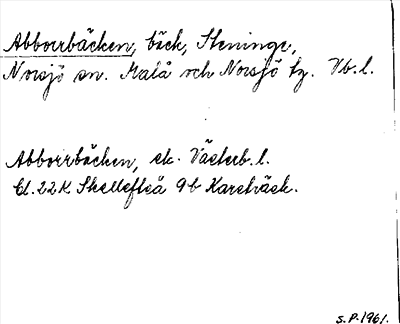 Abborrbäcken, bäck, Steninge,
Norsjö sn. Malå och Norsjö tg. Vb.l.
Abborrbäcken, ek. Västerb.l.
Bl. 22K Skellefteå 9b Karsbäck.
S.P. 1961.